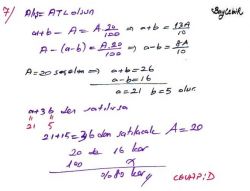 7) Alış = A TL olsun
a+b - A = A.20/100 ⇒ a+b = 12A/10
A - (a-b) = A.20/100 ⇒ a-b = 8A/10
A=20 seçelim ⇒ a+b = 26
a-b = 16
a=21 b=5 olur.
a+3b den satılırsa
21 5
21+15=36 dan satılacak A=20
20 de 16 kar
100 x
%80 kar
CEVAP: D